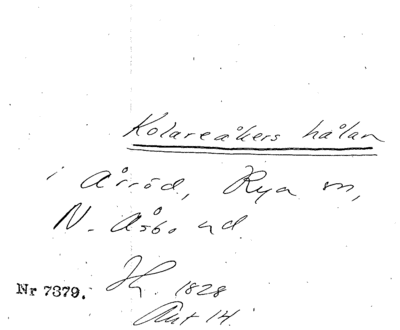 Kolareåkers hålan
i Årröd, Rya sn,
N. Åsbo hd.
Nr 7379. Hf. 1828
Akt 14.